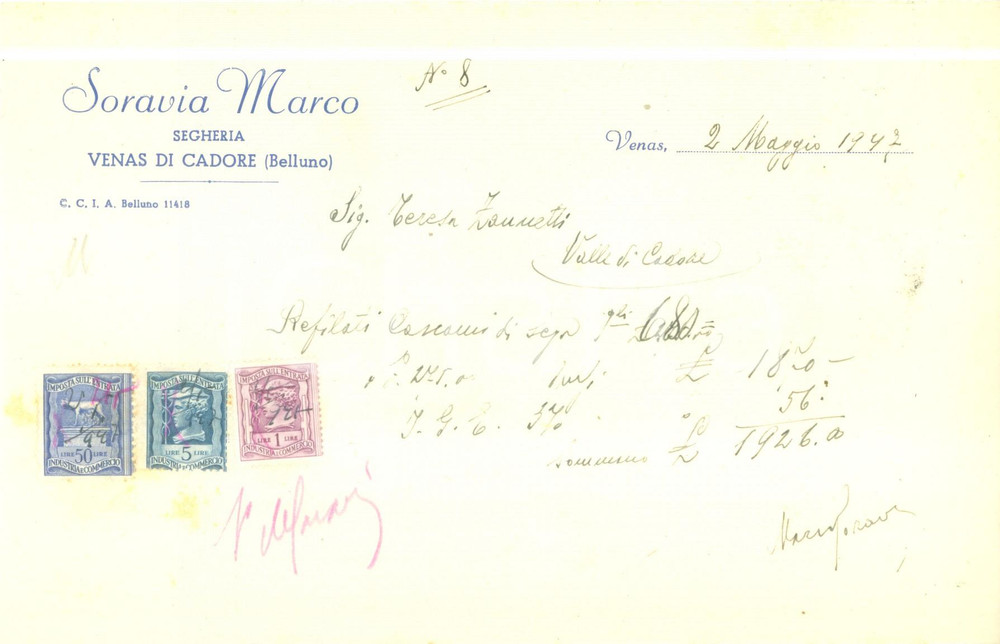 Soravia Marco
SEGHERIA
VENAS DI CADORE (Belluno)
C. C. I. A. Belluno 11418
N° 8
Venas, 2 Maggio 1947
Sig. Teresa Zannetti
Valle di Cadore
Refilati Cascami di sega
£ 1870 -
I. G. E. 3% £ 56
sommano £ 1926.00
IMPOSTA SULL'ENTRATA
LIRE 50 LIRE
INDUSTRIA E COMMERCIO
IMPOSTA SULL'ENTRATA
LIRE 5 LIRE
INDUSTRIA E COMMERCIO
IMPOSTA SULL'ENTRATA
LIRE 1 LIRE
INDUSTRIA E COMMERCIO
Marco Soravia